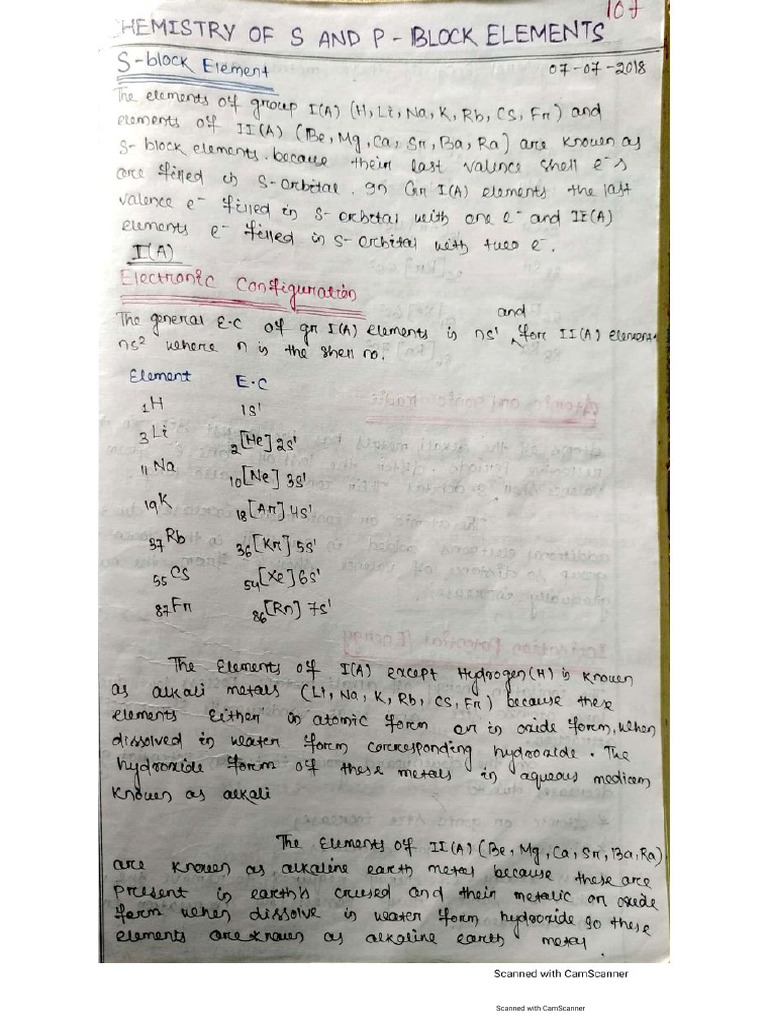 107
CHEMISTRY OF S AND P - BLOCK ELEMENTS
S-block Element
07-07-2018
The elements of group I(A) (H, Li, Na, K, Rb, Cs, Fr) and
elements of II(A) (Be, Mg, Ca, Sr, Ba, Ra) are known as
S-block elements. because their last valence shell e⁻s
are filled in S-orbital. In Gr I(A) elements the last
valence e⁻ filled in S-orbital with one e⁻ and II(A)
elements e⁻ filled in S-orbital with two e⁻.
I(A)
Electronic Configuration
The general E.C of gr I(A) elements is ns¹ and for II(A) element
ns² where n is the shell no.
Element E.C
₁H 1s¹
₃Li ₂[He] 2s¹
₁₁Na ₁₀[Ne] 3s¹
₁₉K ₁₈[Ar] 4s¹
₃₇Rb ₃₆[Kr] 5s¹
₅₅Cs ₅₄[Xe] 6s¹
₈₇Fr ₈₆[Rn] 7s¹
The Elements of I(A) except Hydrogen(H) is known
as alkali metals (Li, Na, K, Rb, Cs, Fr) because these
elements either in atomic form or in oxide form, when
dissolved in water form corresponding hydroxide. The
hydroxide form of these metals in aqueous medium
known as alkali
The Elements of II(A) (Be, Mg, Ca, Sr, Ba, Ra)
are known as alkaline earth metal because these are
present in earth's crused and their metalic or oxide
form when dissolve in water form hydroxide so these
elements are known as alkaline earth metal.
Scanned with CamScanner
Scanned with CamScanner